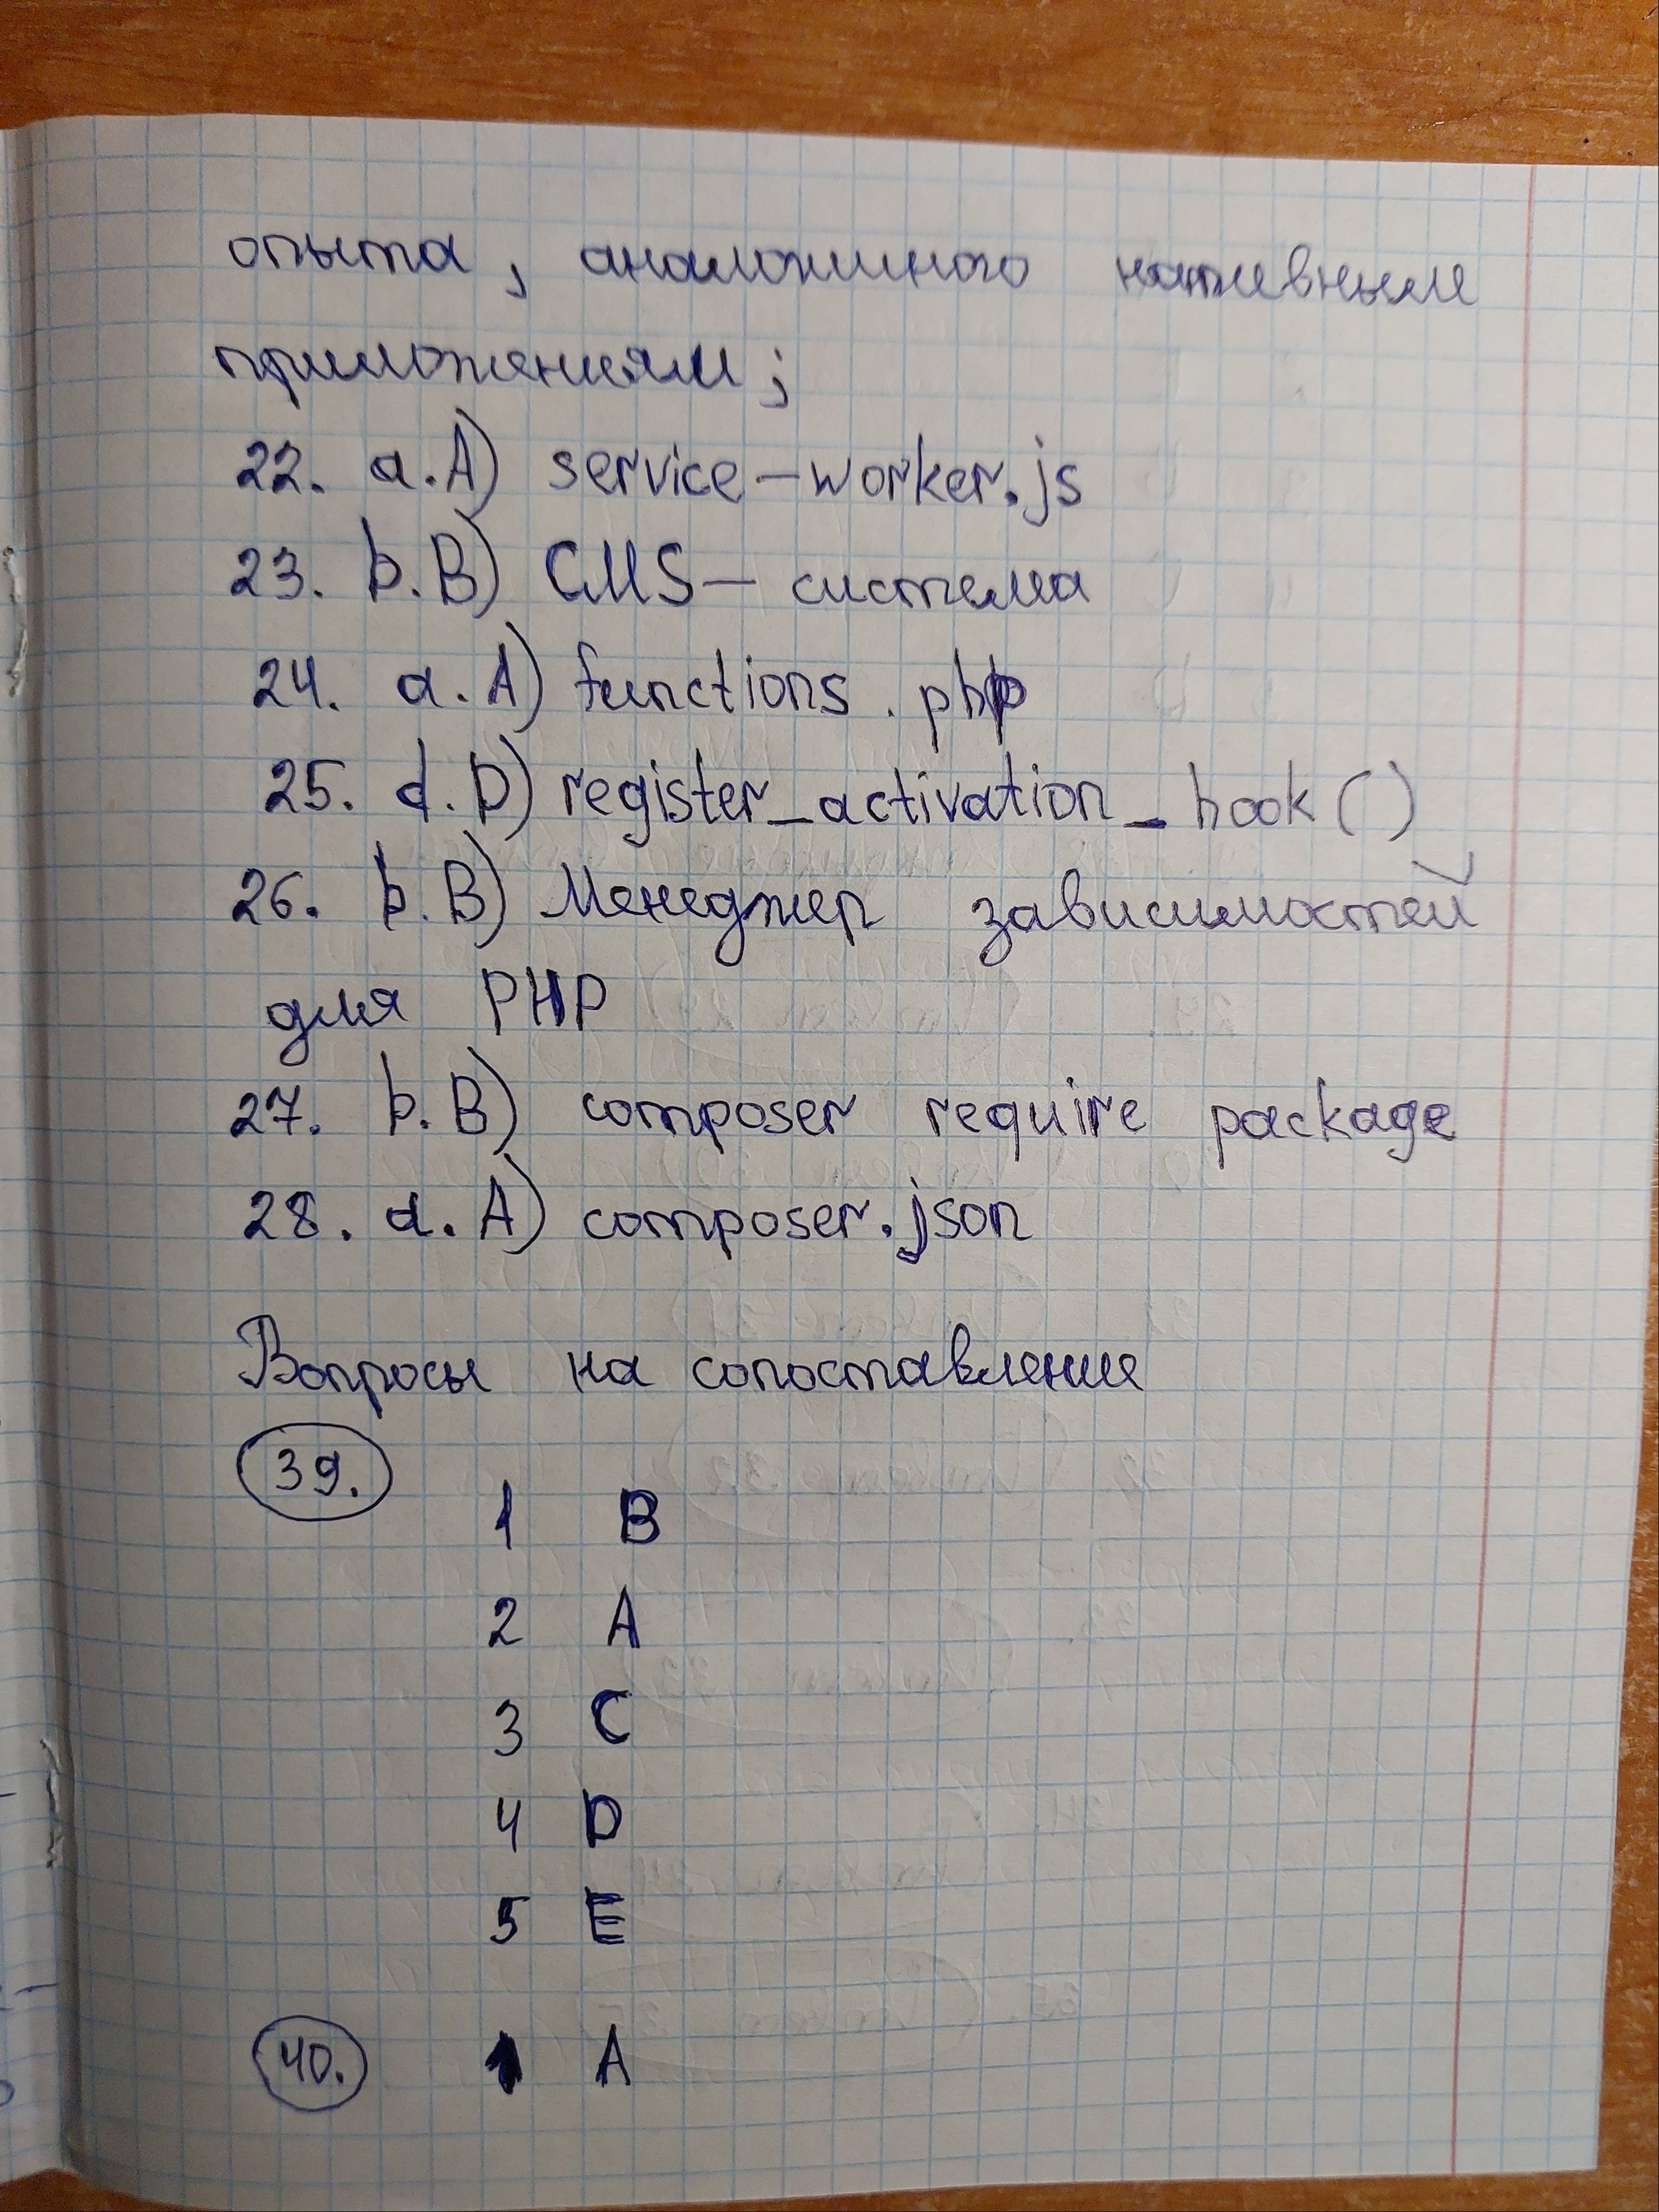 опыта, аналогичного нативным
приложениям;
22. a.A) service-worker.js
23. b.B) CMS- система
24. a.A) functions.php
25. d.D) register_activation_hook()
26. b.B) Менеджер зависимостей
для PHP
27. b.B) composer require package
28. a.A) composer.json
Вопросы на сопоставление
39.
1 B
2 A
3 C
4 D
5 E
40. 1 A